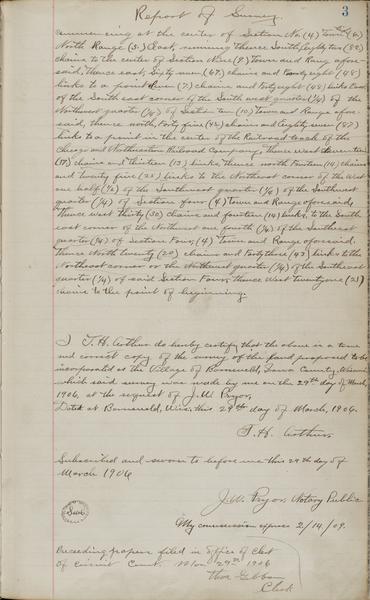 3
Report of Survey
Commencing at the center of Section No. (4) Town (6)
North Range (5) East, running thence South Eighty two (82)
chains to the center of Section Nine (9) Town and Range afore-
said, thence east, Sixty seven (67) chains and Forty eight (48)
links to a point seven (7) chains and Forty eight (48) links East
of the South east corner of the South west quarter (1/4) of the
Northwest quarter (1/4) of Section ten (10) Town and Range afore-
said, thence north Forty five chains and Eighty seven (87)
links to a point in the center of the Railroad track of the
Chicago and Northwestern Railroad Company, thence west Seventeen
(17) chains and thirteen (13) links, thence north Fourteen (14) chains
and twenty five (25) links to the Northeast corner of the West
one half (1/2) of the Southwest quarter (1/4) of the Southwest
quarter (1/4) of Section four (4) Town and Range aforesaid,
thence west thirty (30) chains and fourteen (14) links, to the South
east corner of the Northwest one fourth (1/4) of the Southeast
quarter (1/4) of Section Four, (4) Town and Range aforesaid.
Thence North twenty (20) chains and Forty three (43) links to the
Northeast corner or the Northwest quarter (1/4) of the Southeast
quarter (1/4) of said Section Four, thence West twenty one (21)
chains to the point of beginning.
I J. H. Arthur do hereby certify that the above is a true
and correct copy of the survey of the land proposed to be
incorporated as the Village of Barneveld, Iowa County, Wisconsin
which said survey was made by me on the 29th day of March,
1906, at the request of J. W. Pryor.
Dated at Barneveld, Wis. this 29th day of March, 1906.
J. H. Arthur
Subscribed and sworn to before me this 29th day of
March 1906
J. W. Pryor, Notary Public
Seal
My commission expires 2/14/09.
Preceding papers filed in office of Clerk
of Circuit Court. 29th 1906
Clerk